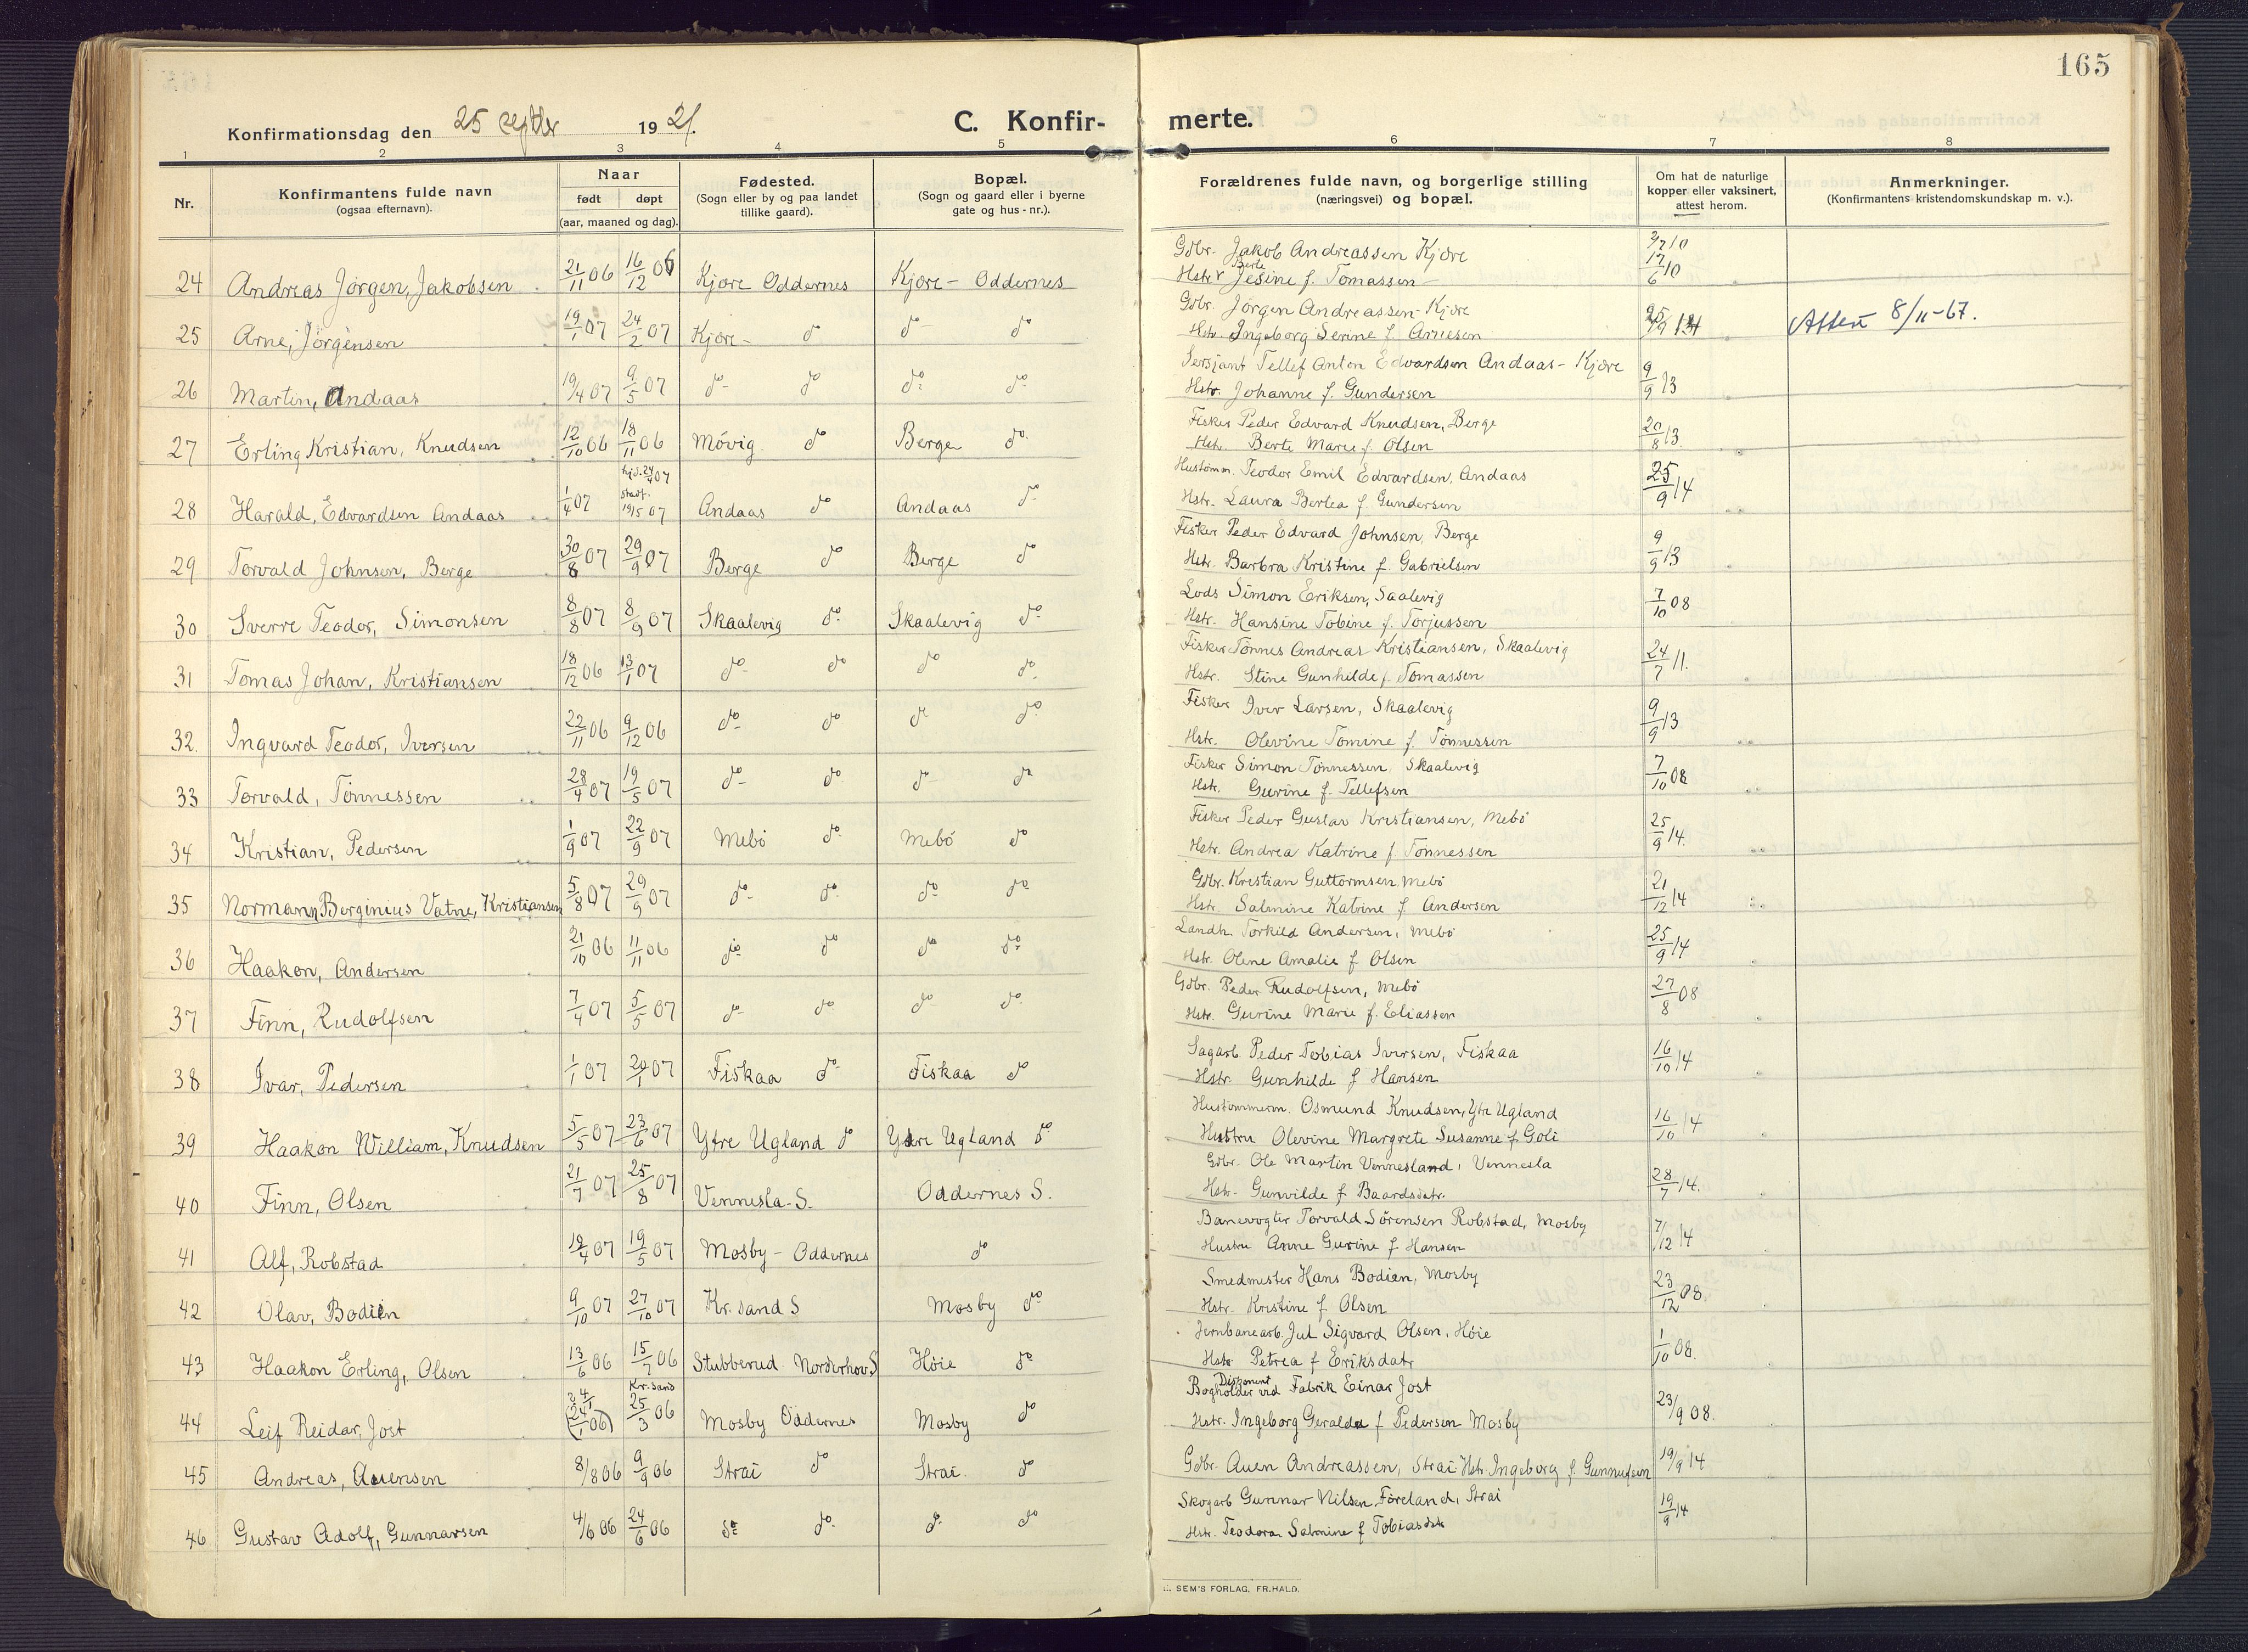 165
Konfirmationsdag den 25 septbr 1921.
C. Konfir-
merte.
1 2 3 4 5 6 7 8
Nr.
Konfirmantens fulde navn
(ogsaa efternavn).
Naar
født døpt
(aar, maaned og dag).
Fødested.
(Sogn eller by og paa landet
tillike gaard).
Bopæl.
(Sogn og gaard eller i byerne
gate og hus - nr.).
Forældrenes fulde navn, og borgerlige stilling
(næringsvei) og bopæl.
Om hat de naturlige
kopper eller vaksinert,
attest herom.
Anmerkninger.
(Konfirmantens kristendomskundskap m. v.).
Gdbr. Jakob Andreassen Kjøre
24 Andreas Jørgen, Jakobsen 21/11 06 16/12 06 Kjøre Oddernes Kjøre - Oddernes Hstr Berte Jesine f. Tomassen 17/6 10
Gdbr. Jørgen Andreassen - Kjøre
25 Arne, Jörgensen 19/1 07 24/2 07 Kjøre - do do do Hstr. Ingeborg Serine f. Arnesen Attest 8/11-67.
Sersjant Tellef Anton Edvardsen Andaas - Kjøre
26 Martin, Andaas 19/4 07 9/5 07 do do do do Hstr. Johanne f. Gundersen 9/9 13
Fisker Peder Edvard Knudsen, Berge
27 Erling Kristian, Knudsen 12/10 06 18/11 06 Móvig do Berge do Hstr. Berte Marie f. Olsen 20/8 13.
Hustømm. Teodor Emil Edvardsen, Andaas
28 Harald, Edvardsen Andaas 1/4 07 hjd. 24/4 07 stadf. 19/5 07 Andaas do Andaas do Hstr. Laura Bertea f. Gundersen 25/9 14
Fisker Peder Edvard Johnsen, Berge
29 Torvald Johnsen, Berge 30/8 07 29/9 07 Berge do Berge do Hstr. Barbra Kristine f. Gabrielsen 9/9 13
Lods Simon Eriksen, Saalevig
30 Sverre Teodor, Simonsen 8/8 07 8/9 07 Skaalevig do Skaalevig do Hstr. Hansine Tobine f. Torjussen 7/10 08
Fisker Tönnes Andreas Kristiansen, Skaalevig
31 Tomas Johan, Kristiansen 18/12 06 13/1 07 do do do do Hstr. Stine Gunhilde f. Tomassen 24/7 11.
Fisker Iver Larsen, Skaalevig
32. Ingvard Teodor, Iversen 22/11 06 9/12 06 do do do do Hstr. Olevine Tomine f. Tønnessen 9/9 13
Fisker Simon Tønnessen, Skaalevig
33 Torvald, Tönnessen 28/4 07 19/5 07 do do do do Hstr. Gurine f. Tellefsen 7/10 08
Fisker Peder Gustav Kristiansen, Mebö
34 Kristian, Pedersen 1/9 07 22/9 07 Mebö do Mebö do Hstr. Andrea Katrine f. Tonnessen 25/9 14.
Gdbr. Kristian Guttormsen, Mebö
35 Normann Berginius Vatne, Kristiansen 5/8 07 29/9 07 do do do do Hstr. Salmine Katrine f. Andersen 21/12 14
Landh. Torkild Andersen, Mebö
36 Haakon, Andersen 21/10 06 11/11 06 do do do do Hstr. Olene Amalie f Olsen 25/9 14
Gdbr. Peder Rudolfsen, Mebö
37 Finn, Rudolfsen 7/4 07 5/5 07 do do do do Hstr. Gurine Marie f. Eliassen 27/8 08
Sagarb. Peder Tobias Iversen, Fiskaa
38 Ivar, Pedersen 1/1 07 20/1 07 Fiskaa do Fiskaa do Hstr. Gunhilde f Hansen 16/10 14
Hustømmerm. Osmund Knudsen, Ytre Ugland
39 Haakon William, Knudsen 5/5 07 23/6 07 Ytre Ugland do Ytre Ugland do Hustru Olevine Margrete Susanne f. Goli 16/10 14
Gdbr. Ole Martin Vennesland, Vennesla
40 Finn, Olsen 21/7 07 25/8 07 Vennesla - S. Oddernes S. Hstr. Gunvilde f Baardsdatr. 28/7 14.
Banevogter Torvald Sörensen Robstad, Mosby
41 Alf, Robstad 12/4 07 19/5 07 Mosby - Oddernes do Hustru Anne Gurine f Hansen 7/12 14
Smedmester Hans Bodien, Mosby
42 Olav, Bodien 9/10 07 27/10 07 Kr. sand S Mosby do Hstr. Kristine f. Olsen 23/12 08.
Jernbanearb. Jul Sigvard Olsen, Höie
43 Haakon Erling, Olsen 13/6 06 15/7 06 Stubberud Norderhov S Höie do Hstr Petrea f Eriksdatr 1/10 08.
Disponent
Bogholder ved Fabrik Einar Jost
44 Leif Reidar, Jost 24/1 (24/1 06) Kr. sand 25/3 06 Mosby Oddernes Mosby do Hstr. Ingeborg Geralda f Pedersen Mosby 23/9 08.
45 Andreas, Auensen 8/8 06 9/9 06 Strai do Strai. do Gdbr. Auen Andreassen, Strai Hstr. Ingeborg f. Gunnufsen 19/9 14
Skogarb Gunnar Nilsen Föreland, Strai
46 Gustav Adolf, Gunnarsen 4/6 06 24/6 06 do do do do Hstr. Teodora Salmine f Tobiasdtr 19/9 14
SEM'S FORLAG, FR.HALD.